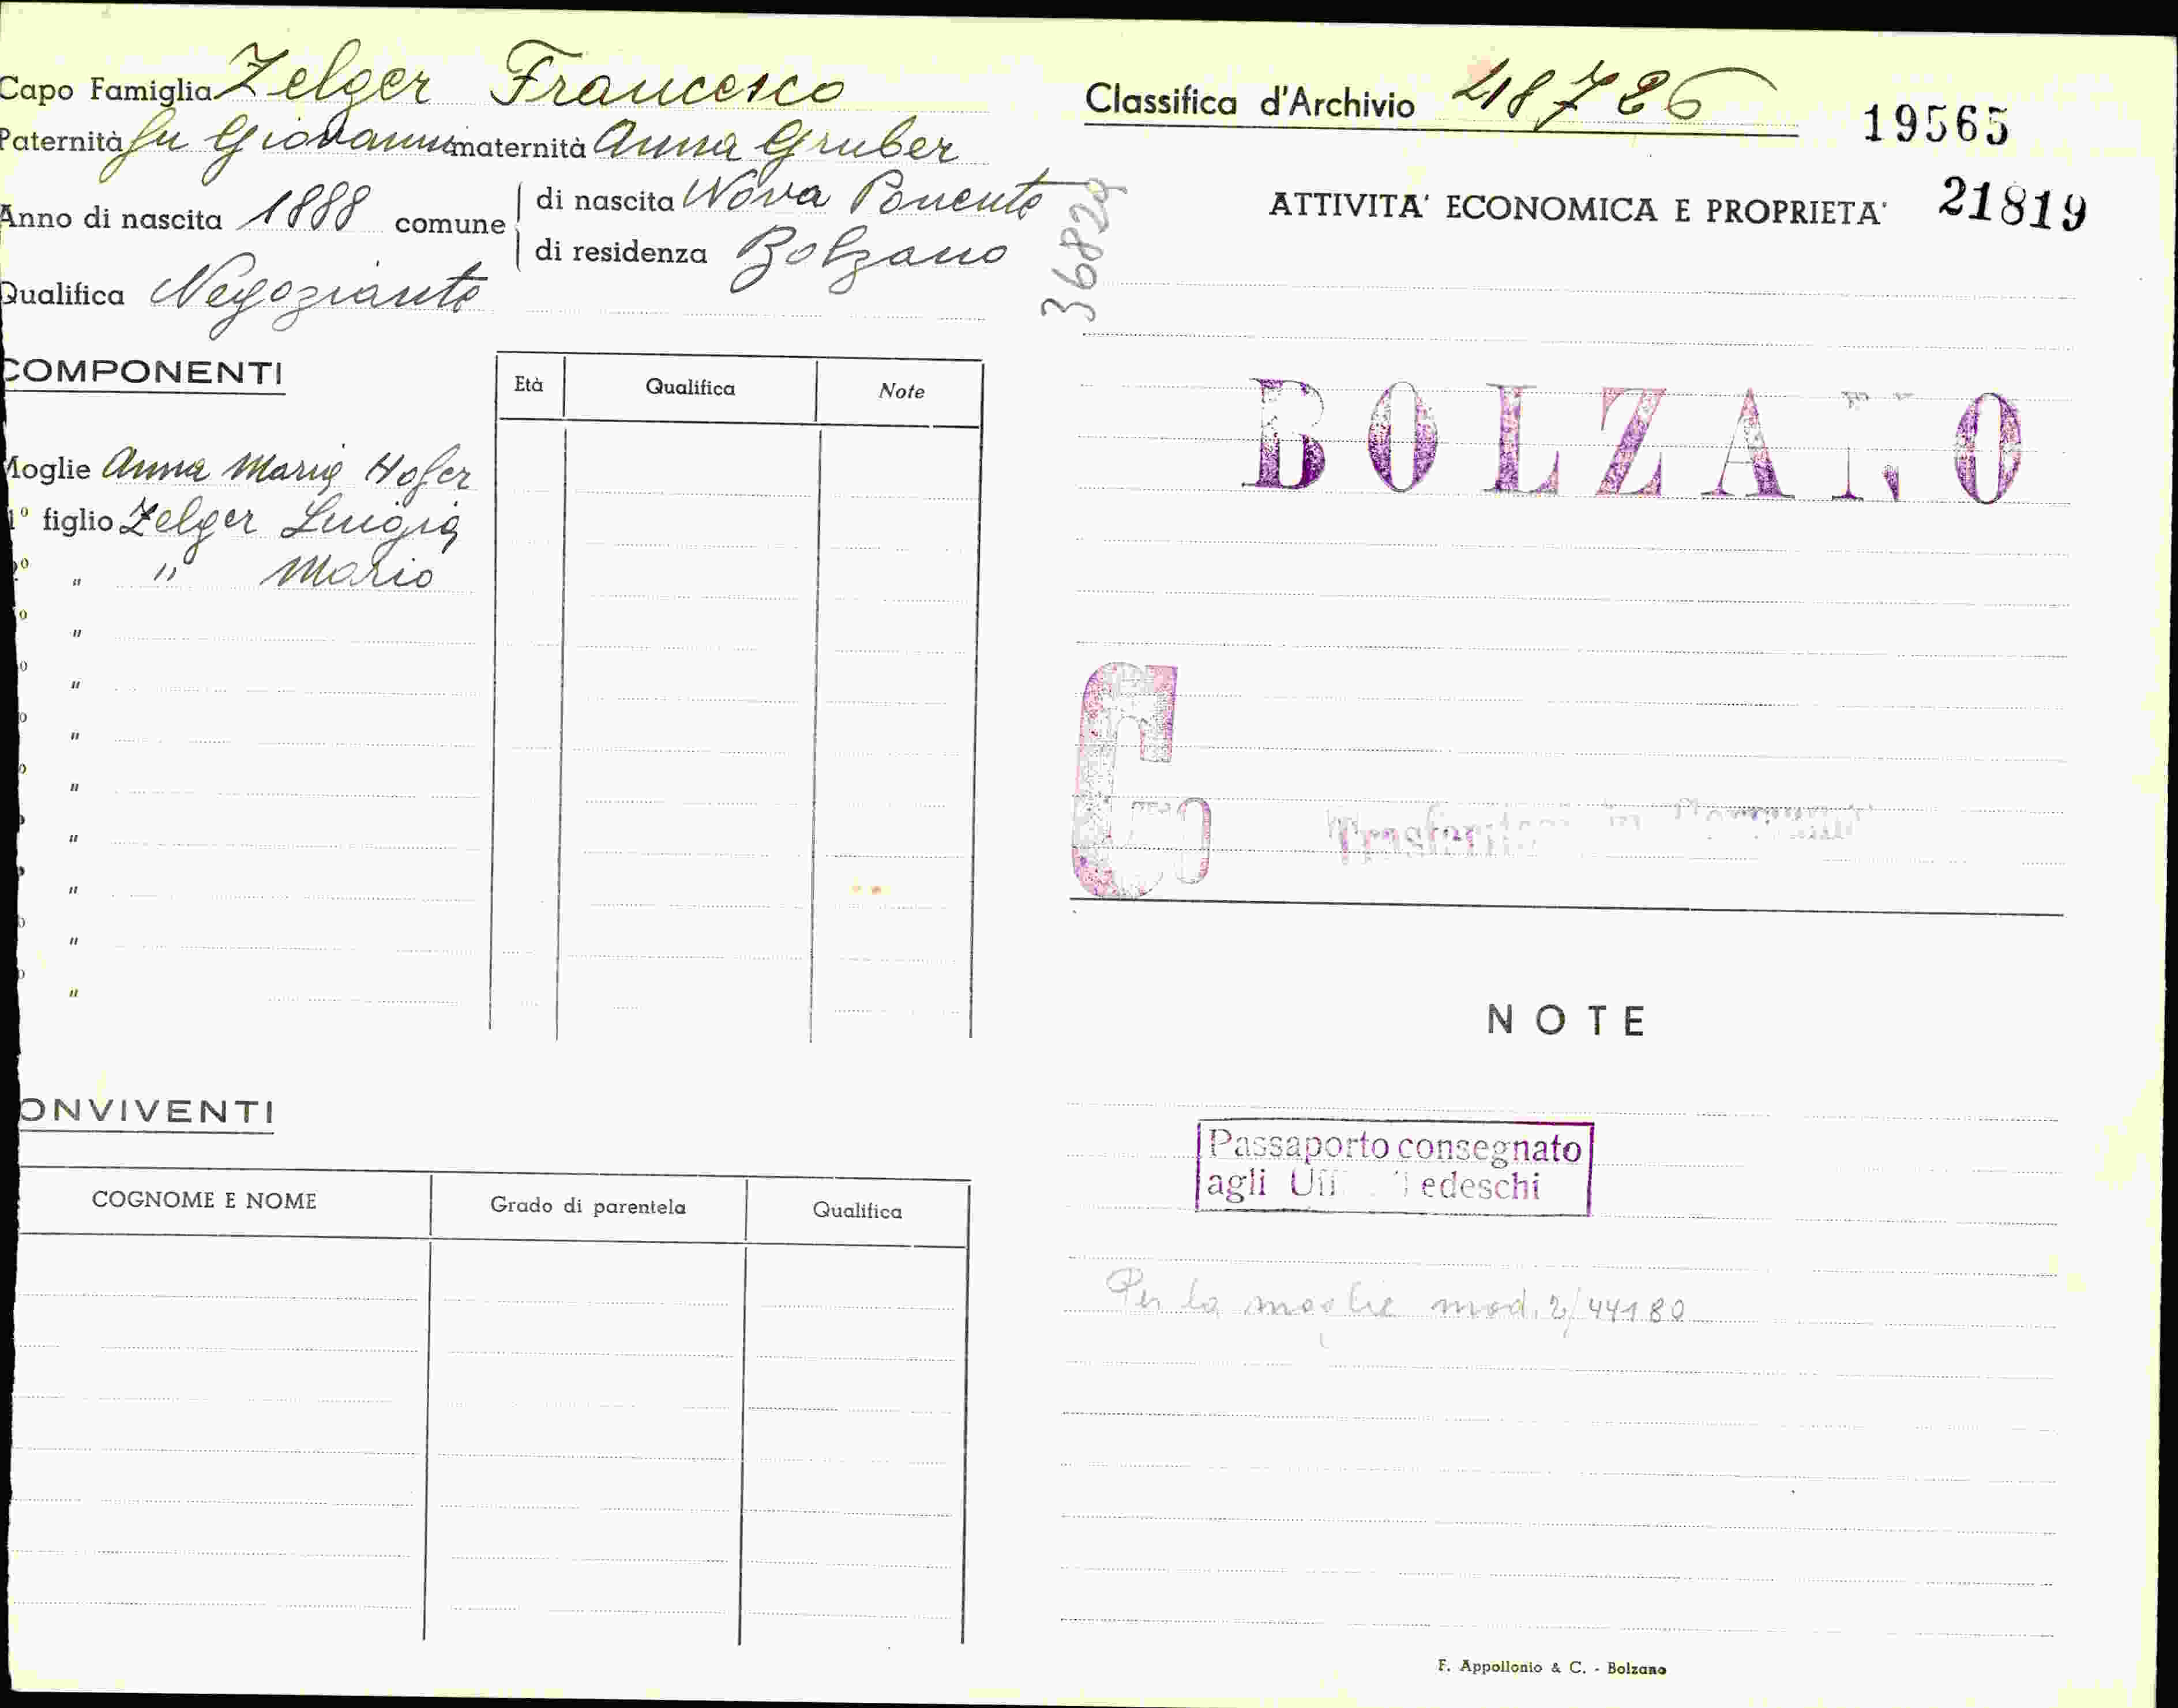 Capo Famiglia Zelger Francesco
Paternità fu Giovanni maternità Anna Gruber
Anno di nascita 1888 comune di nascita Nova Ponente
di residenza Bolzano
Qualifica Negoziante
COMPONENTI
Età Qualifica Note
Moglie Anna Maria Hofer
1º figlio Zelger Luigia
2º " " Mario
"
"
"
"
"
"
"
"
ONVIVENTI
COGNOME E NOME Grado di parentela Qualifica
Classifica d'Archivio 48726 19565
36829
ATTIVITA' ECONOMICA E PROPRIETA' 21819
BOLZANO
G
NOTE
Passaporto consegnato
agli Tedeschi
Per la moglie mod. 2/44180
F. Appollonio & C. - Bolzano